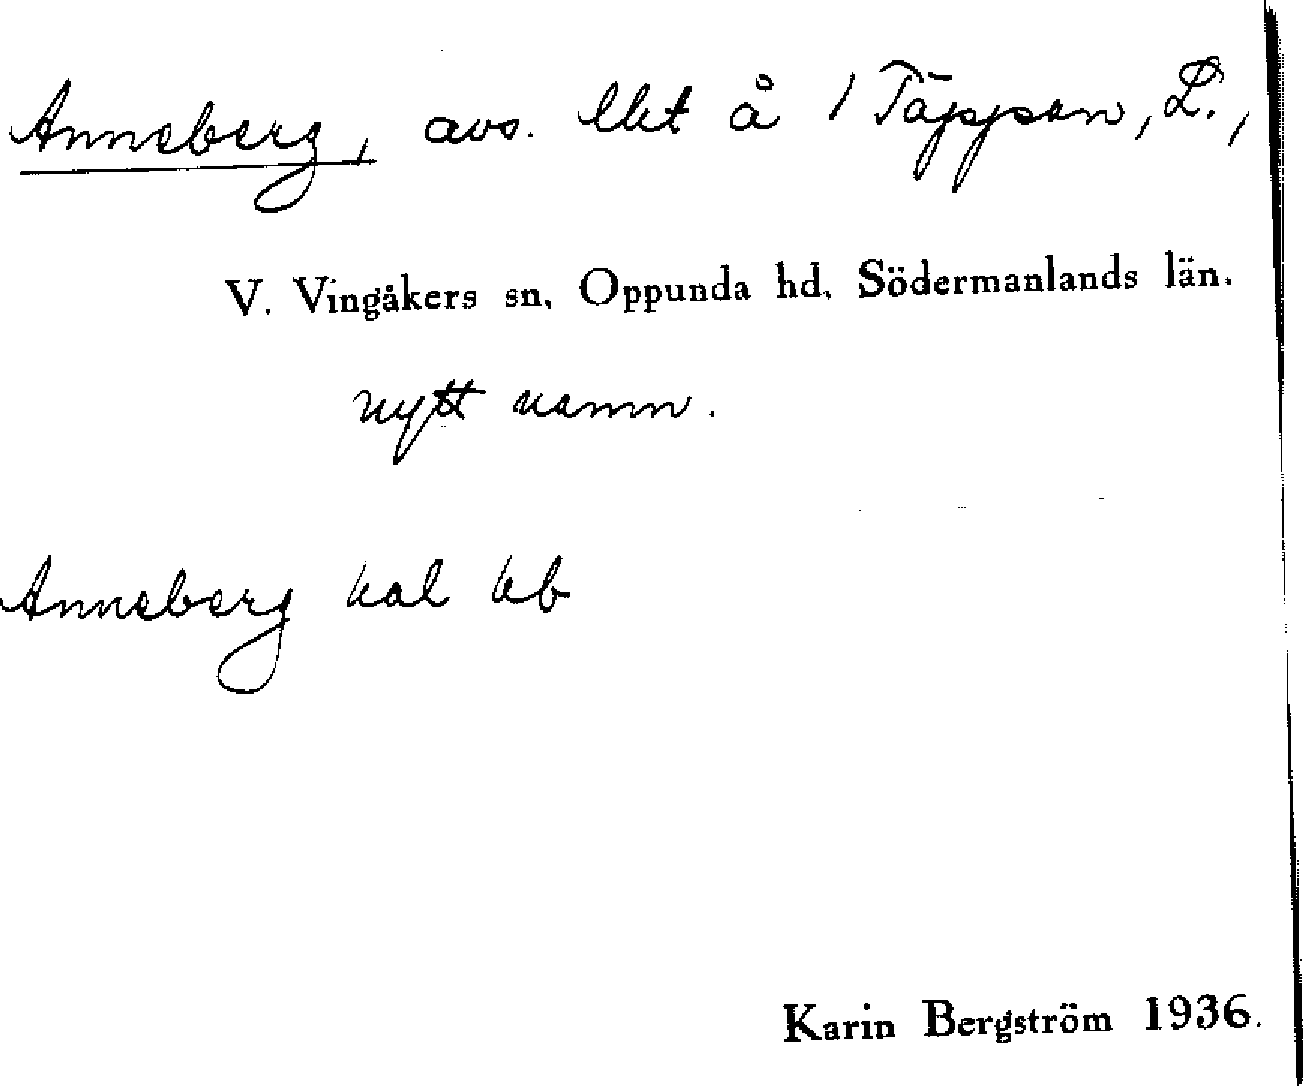 Anneberg, avs. lht å 1 Täppan, L.,
V. Vingåkers sn, Oppunda hd, Södermanlands län.
nytt namn.
Anneberg kal kb
Karin Bergström 1936.